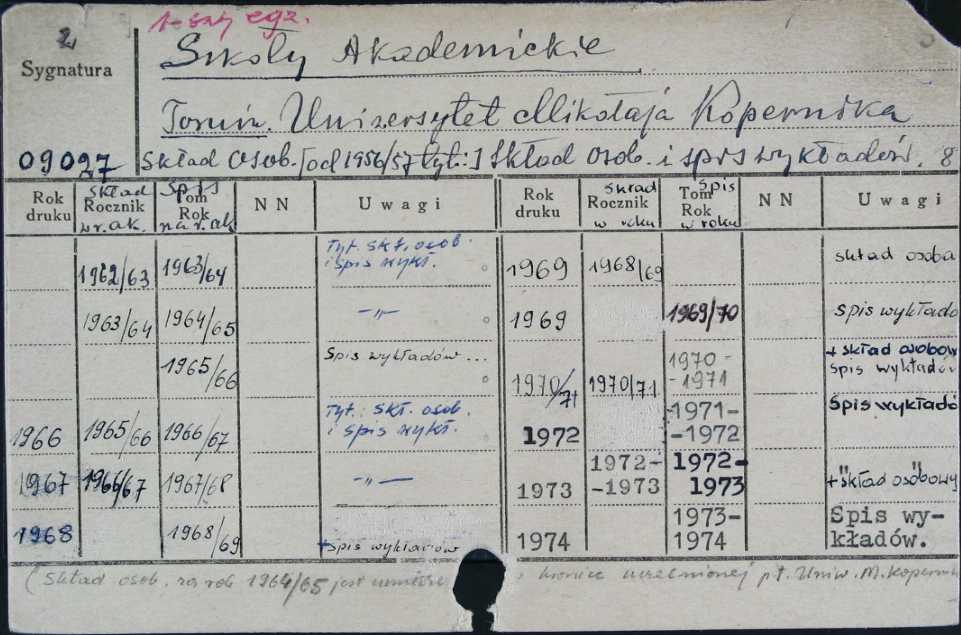 1-szy egz.
2
Sygnatura
Szkoły Akademickie
Toruń. Uniwersytet Mikołaja Kopernika
09027 Skład osob. [od 1956/57 tyt:] Skład osob. i spis wykładów. 8
Rok druku Skład Rocznik w r. ak. Spis Tom Rok na r. ak NN Uwagi Rok druku Skład Rocznik w roku Spis Tom Rok w roku NN Uwagi
1962/63 1963/64 Tyt. skł. osob. i spis wykł. 1969 1968/69 skład osobo
1963/64 1964/65 -"- 1969 1969/70 spis wykłado
1965/66 Spis wykładów... 1970/71 1970/71 1970--1971 + skład osobow spis wykładów
1966 1965/66 1966/67 Tyt.: skł. osob. i spis wykł. 1972 1971--1972 Spis wykładó
1967 1966/67 1967/68 -"- 1973 1972--1973 1972-1973 +"skład osobowy"
1968 1968/69 +spis wykładów 1974 1973-1974 Spis wy-kładów.
(Skład osob. za rok 1964/65 jest umieszc końcu uczelnionej pt. Uniw. M. Kopernik